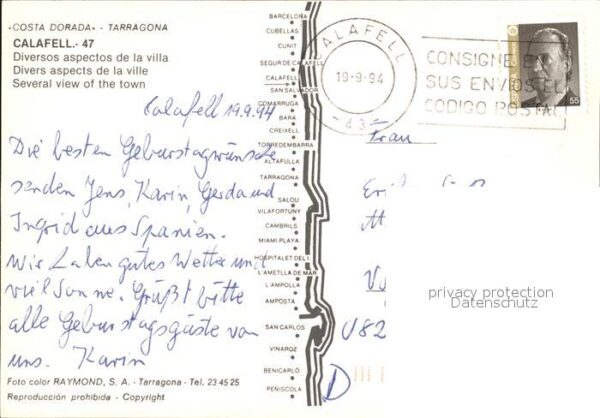 «COSTA DORADA» - TARRAGONA
CALAFELL.- 47
Diversos aspectos de la villa
Divers aspects de la ville
Several view of the town
Calafell 19.9.94
Die besten Geburstagwünsche
senden Jens, Karin, Gerda und
Ingrid aus Spanien.
Wir haben gutes Wetter und
viel Sonne. Grüßt bitte
alle Geburstagsgäste von
uns. Karin
Foto color RAYMOND, S. A. - Tarragona - Tel. 23 45 25
Reproducción prohibida - Copyright
BARCELONA
CUBELLAS
CUNIT
SEGUR DE CALAFELL
CALAFELL
SAN SALVADOR
COMARRUGA
BARA
CREIXELL
TORREDEMBARRA
ALTAFULLA
TARRAGONA
SALOU
VILAFORTUNY
CAMBRILS
MIAMI PLAYA
HOSPITALET DEL I.
L'AMETLLA DE MAR
L'AMPOLLA
AMPOSTA
SAN CARLOS
VINAROZ
BENICARLÓ
PEÑISCOLA
CALAFELL
19-9-94
- 43 -
CONSIGNE EN
SUS ENVIOS EL
CODIGO POSTAL
ESPAÑA
55
Frau
D
privacy protection
Datenschutz